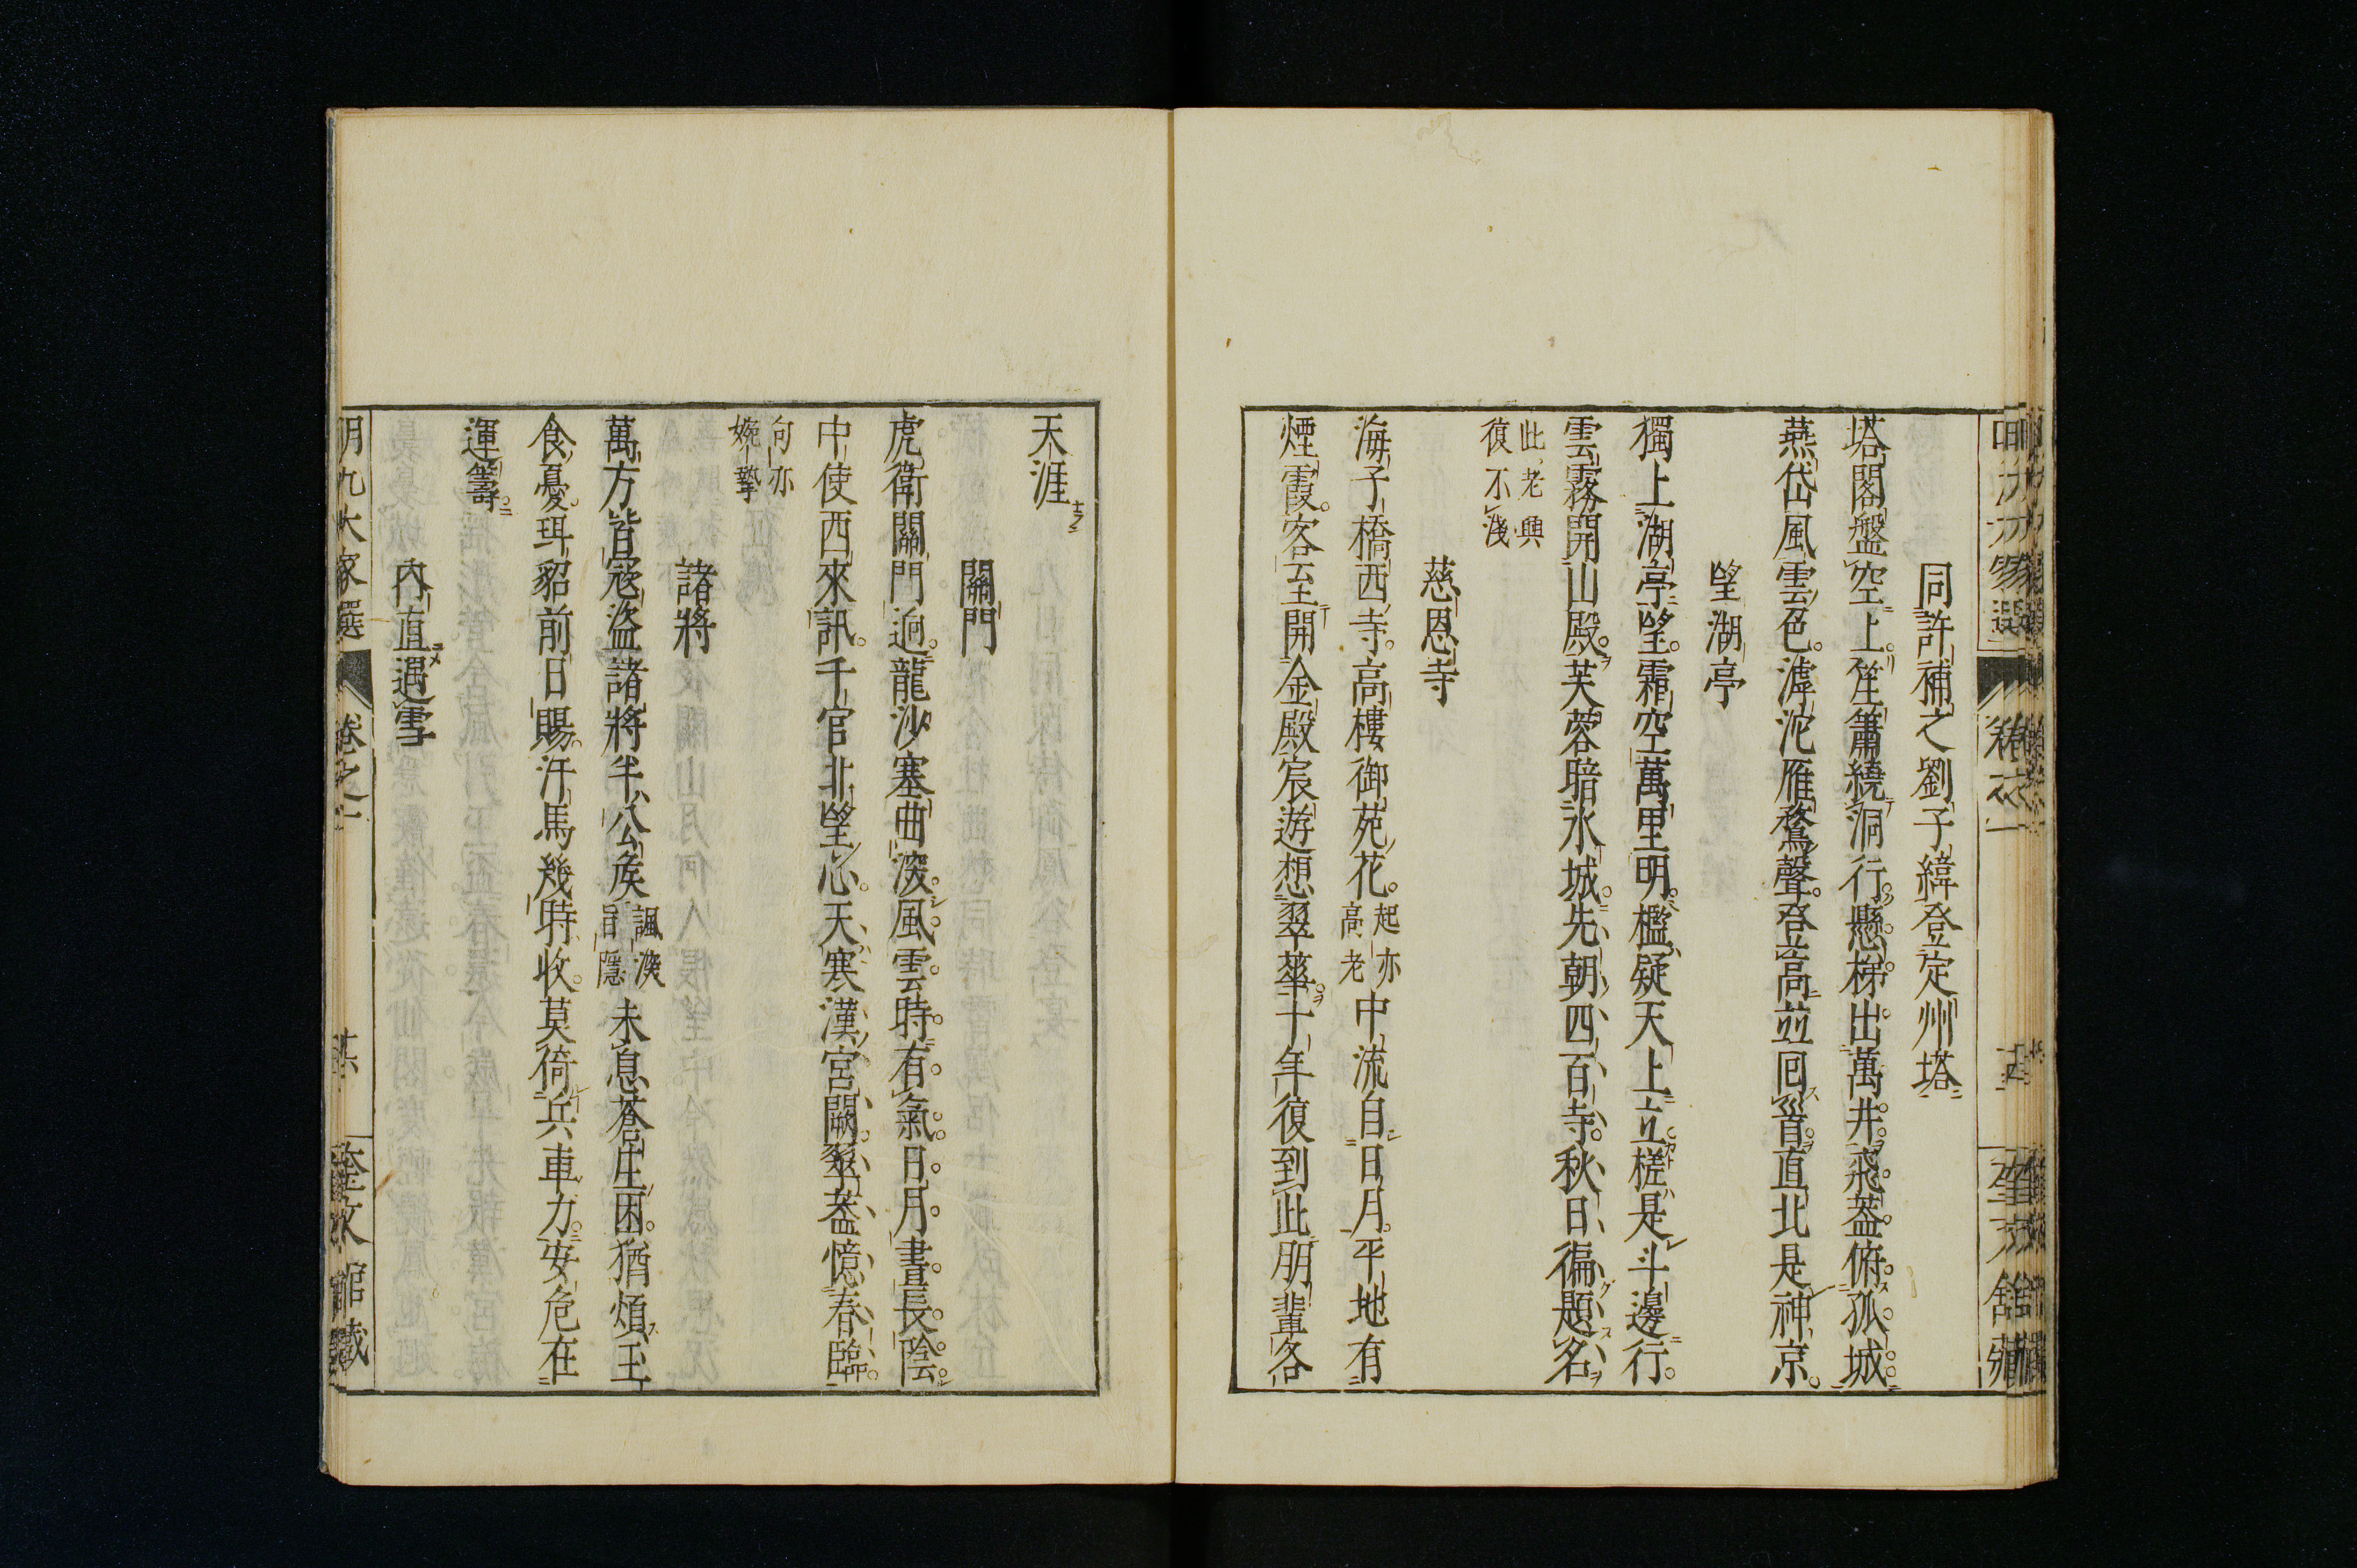 同許補之劉子緯登定州塔
塔閣盤空上笙簫繞洞行懸梯出萬井飛蓋俯孤城
燕岱風雲色滹沱雁鶩聲登高並回首直北是神京
望湖亭
獨上湖亭望霜空萬里明檻疑天上立槎是斗邊行
雲霧開山殿芙蓉暗水城先朝四百寺秋日徧題名
此老興
復不淺
慈恩寺
海子橋西寺高樓御苑花起亦高老中流自日月平地有
煙霞客至開金殿宸遊想翠華十年復到此朋輩各
天涯
關門
虎衛關門迥龍沙塞曲深風雲時有氣日月晝長陰
中使西來訊千官北望心天寒漢宮闕翠蓋憶春臨
句亦
婉摯
諸將
萬方皆寇盜諸將半公侯諷深旨隱未息蒼生困猶煩玉
食憂珥貂前日賜汗馬幾時收莫倚兵車力安危在
運籌
內直遇雪
明九大家選 卷之一 奎文館藏